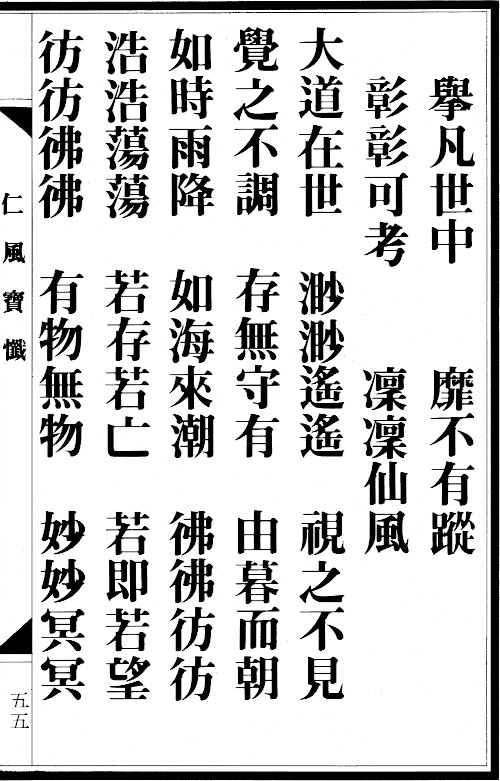 舉凡世中　靡不有蹤
彰彰可考　凜凜仙風
大道在世　渺渺遙遙　視之不見
覺之不調　存無守有　由暮而朝
如時雨降　如海來潮　彿彿彷彷
浩浩蕩蕩　若存若亡　若即若望
彷彷彿彿　有物無物　妙妙冥冥
仁風寶懺
五五